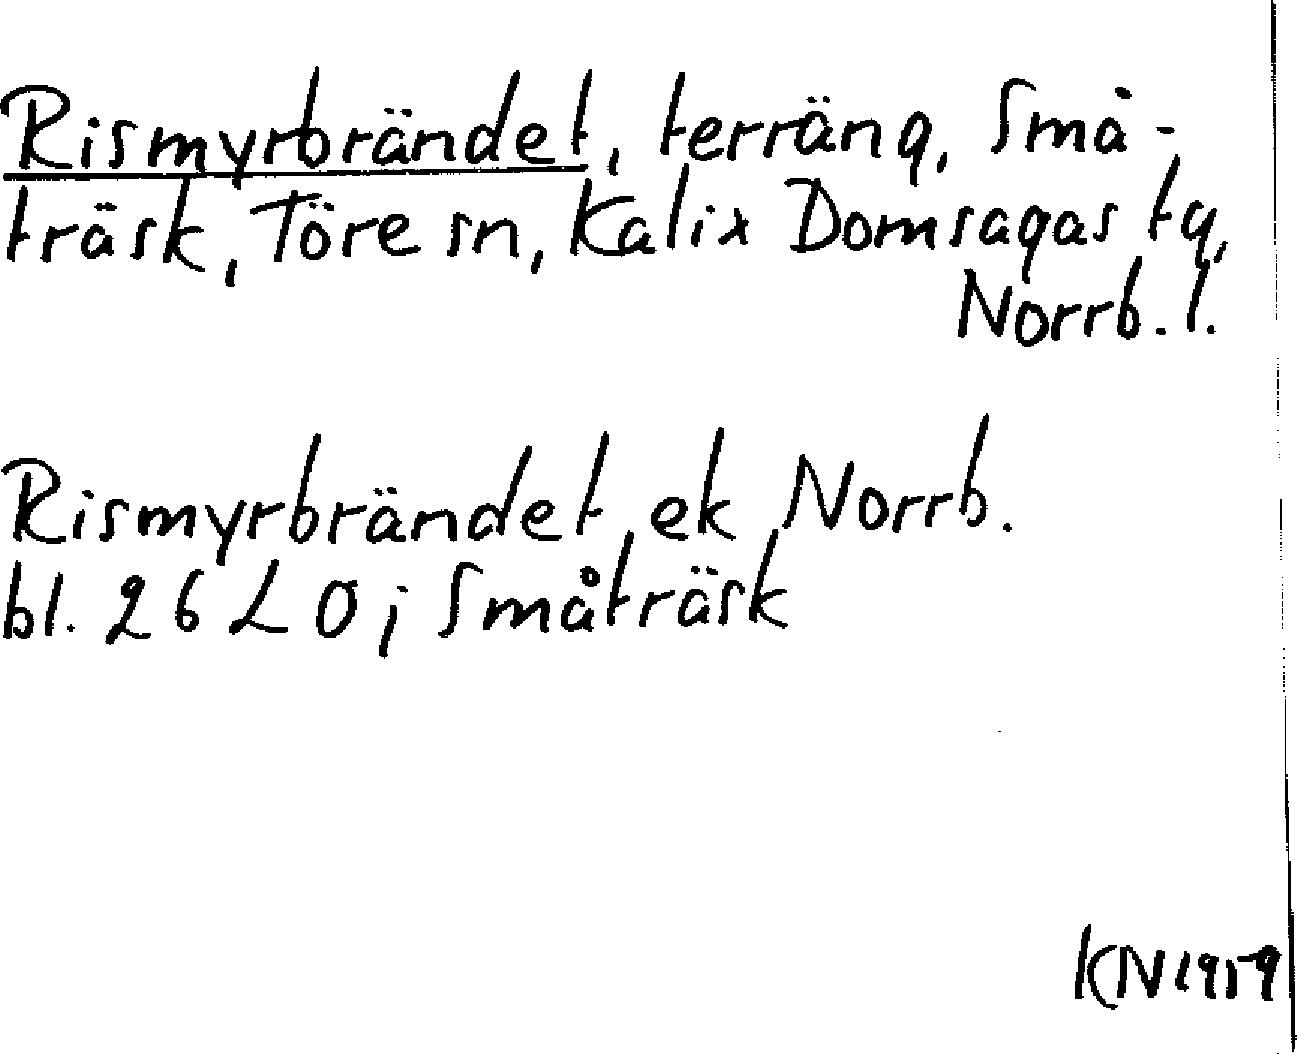 Rismyrbrändet, terräng, Små-
träsk, Töre sn, Kalix Domsagas tg,
Norrb. l.
Rismyrbrändet ek Norrb.
bl. 26 L O; Småträsk
KN 1959